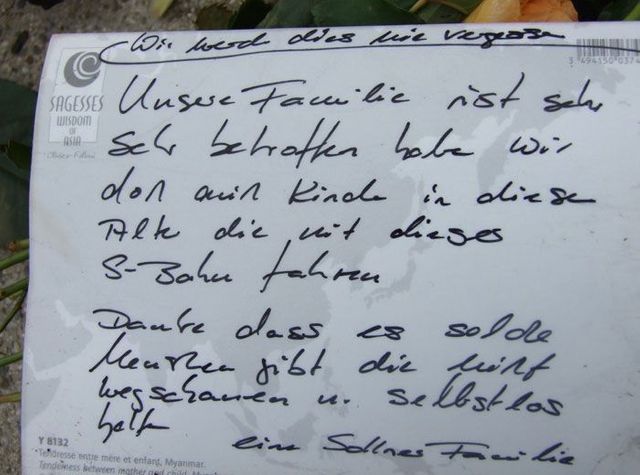 Wir werd dies nie vergessen
SAGESSES
WISDOM
OF
ASIA
Olivier Föllmi
3 494150 0374
Unsere Familie ist sehr
Sehr betroffen habe wir
doch auch Kinde in diese
Alte die mit dieses
S-Bahn fahren
Danke dass es solche
Menschen gibt die nicht
wegschauen u. selbstlos
helfen
eine Sollner Familie
Y 8132
Tendresse entre mère et enfant, Myanmar.
Tenderness between mother and child,